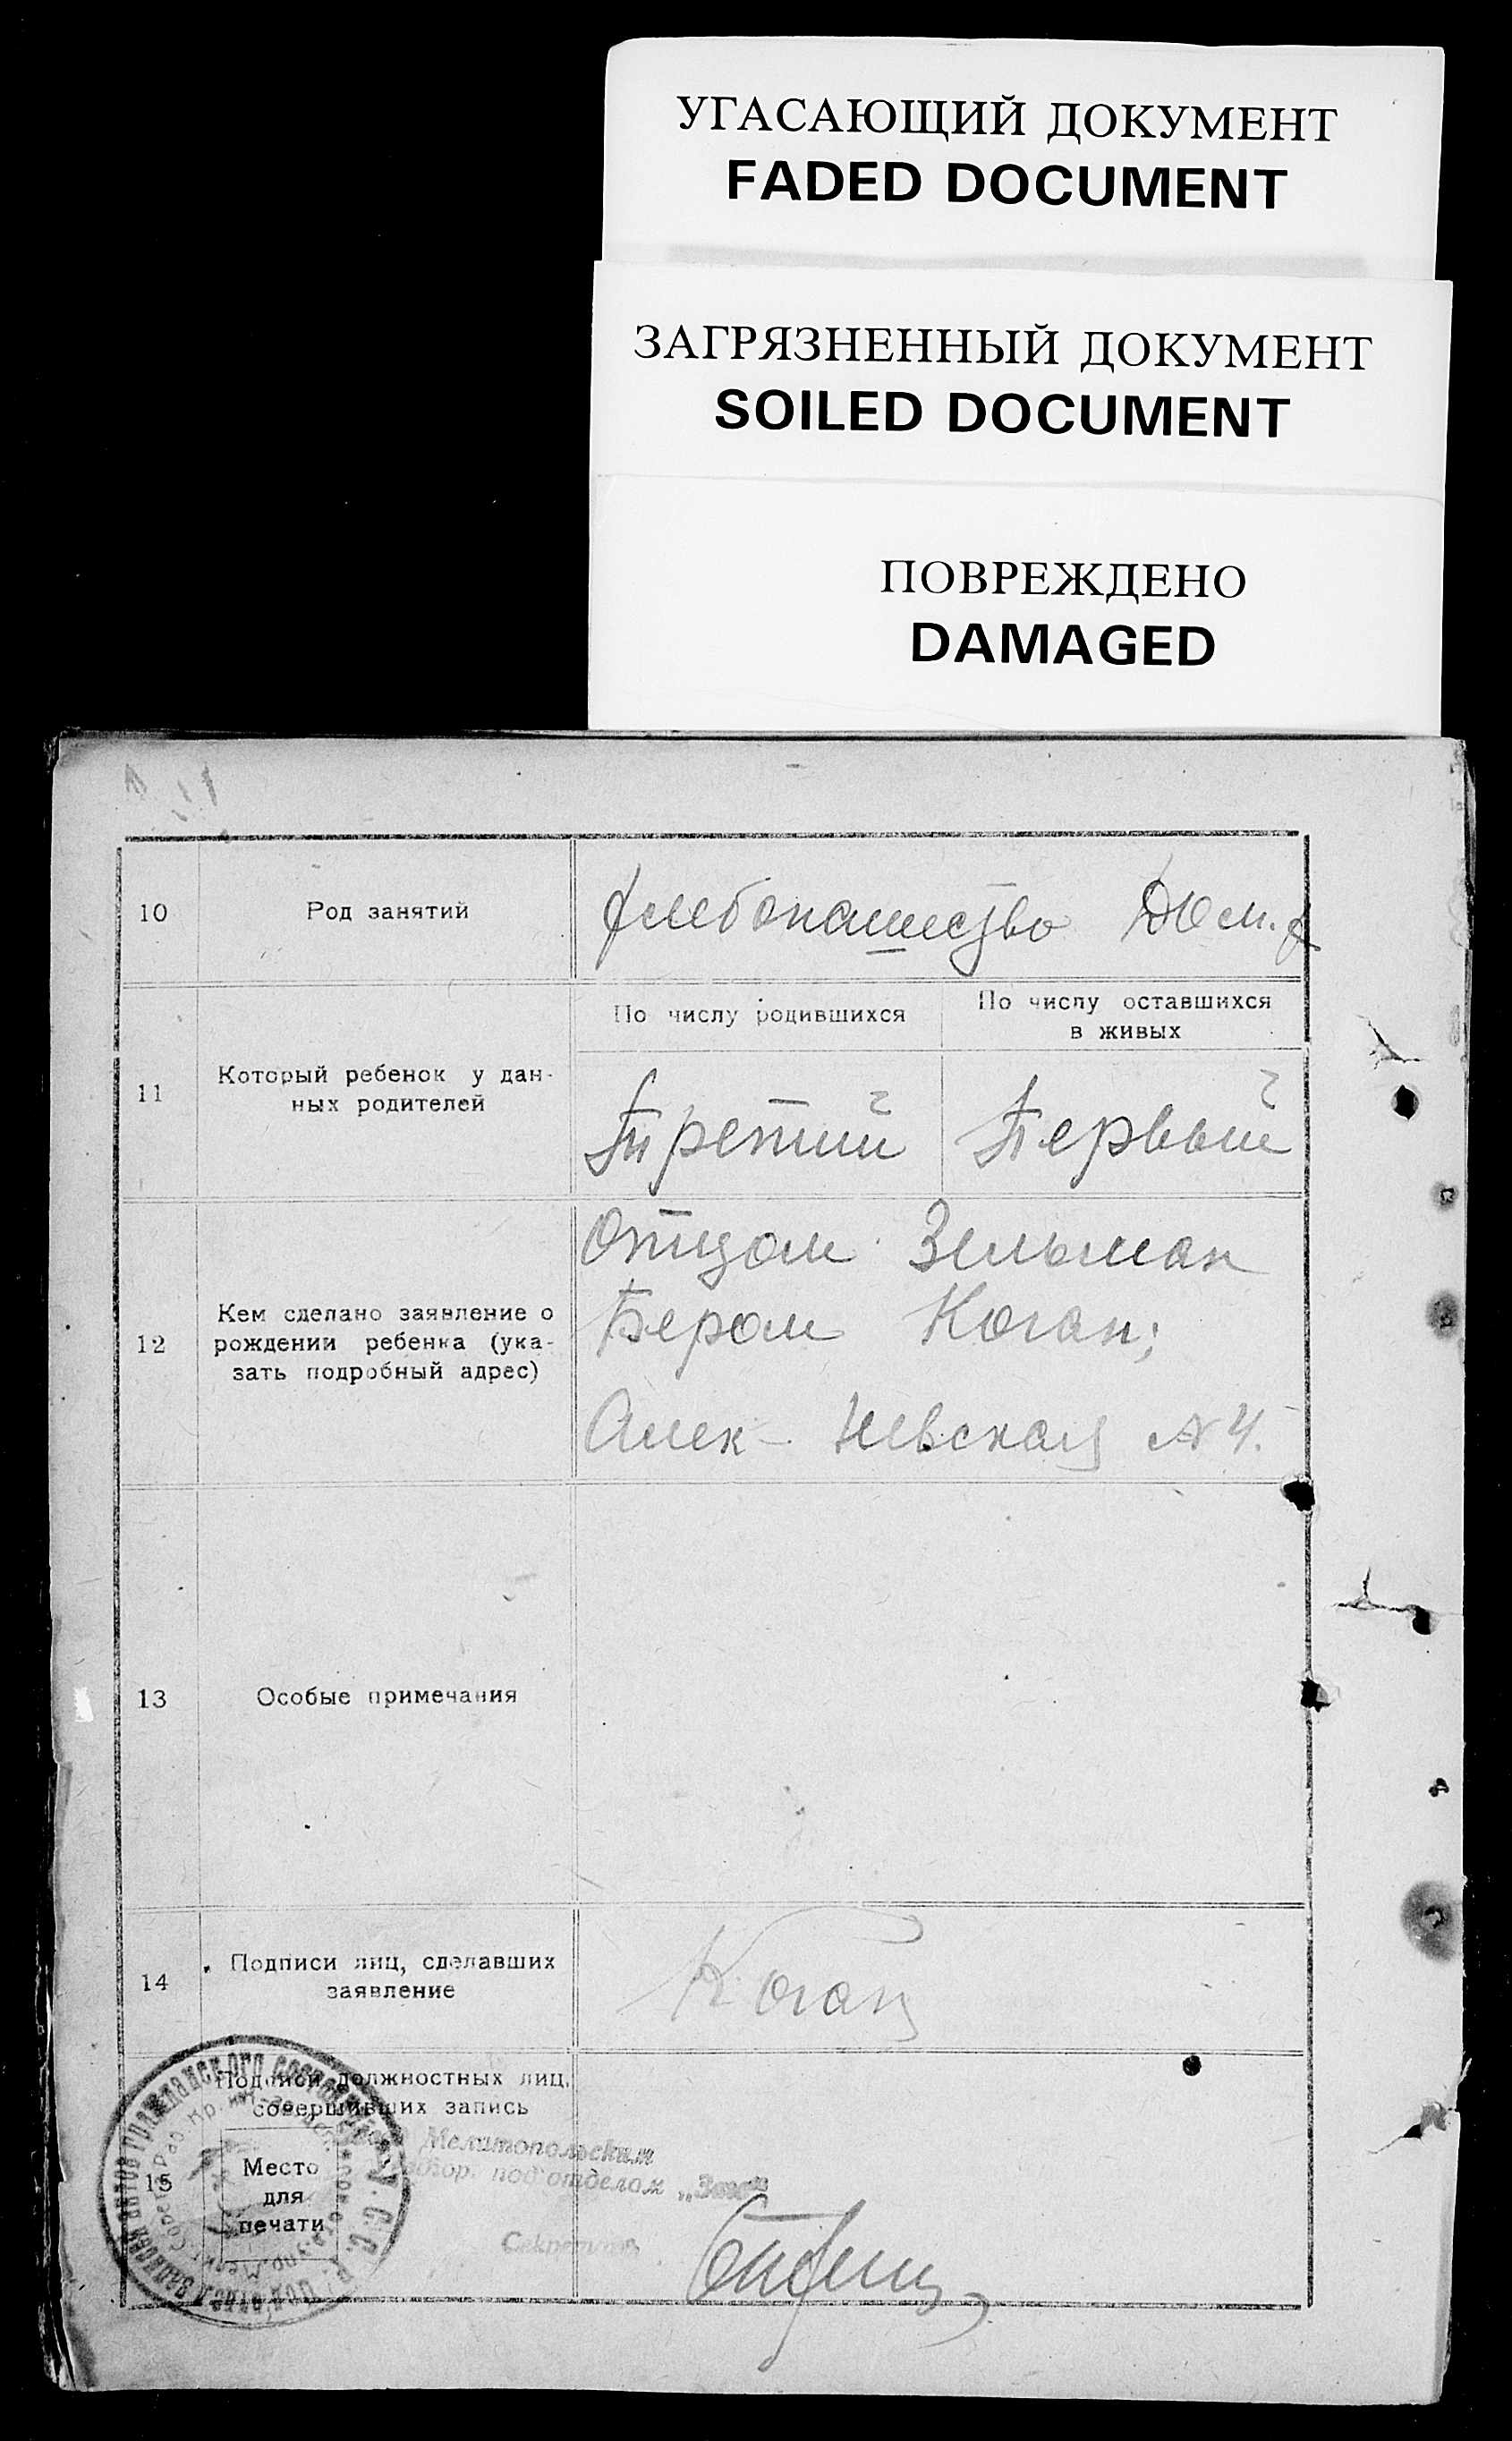 УГАСАЮЩИЙ ДОКУМЕНТ
FADED DOCUMENT
ЗАГРЯЗНЕННЫЙ ДОКУМЕНТ
SOILED DOCUMENT
ПОВРЕЖДЕНО
DAMAGED
10
Род занятий
хлебопашество Дом. х
11
Который ребенок у дан-
ных родителей
По числу родившихся
По числу оставшихся
в живых
Третий
Первый
12
Кем сделано заявление о
рождении ребенка (ука-
зать подробный адрес)
Отцом Зельман
Бером Коган;
Алек- Невская № 4.
13
Особые примечания
14
Подписи лиц, сделавших
заявление
Коган
15
Подписи должностных лиц,
совершивших запись
Место
для
печати
Мелитопольским
под'отделом „Загс"
Секретарь